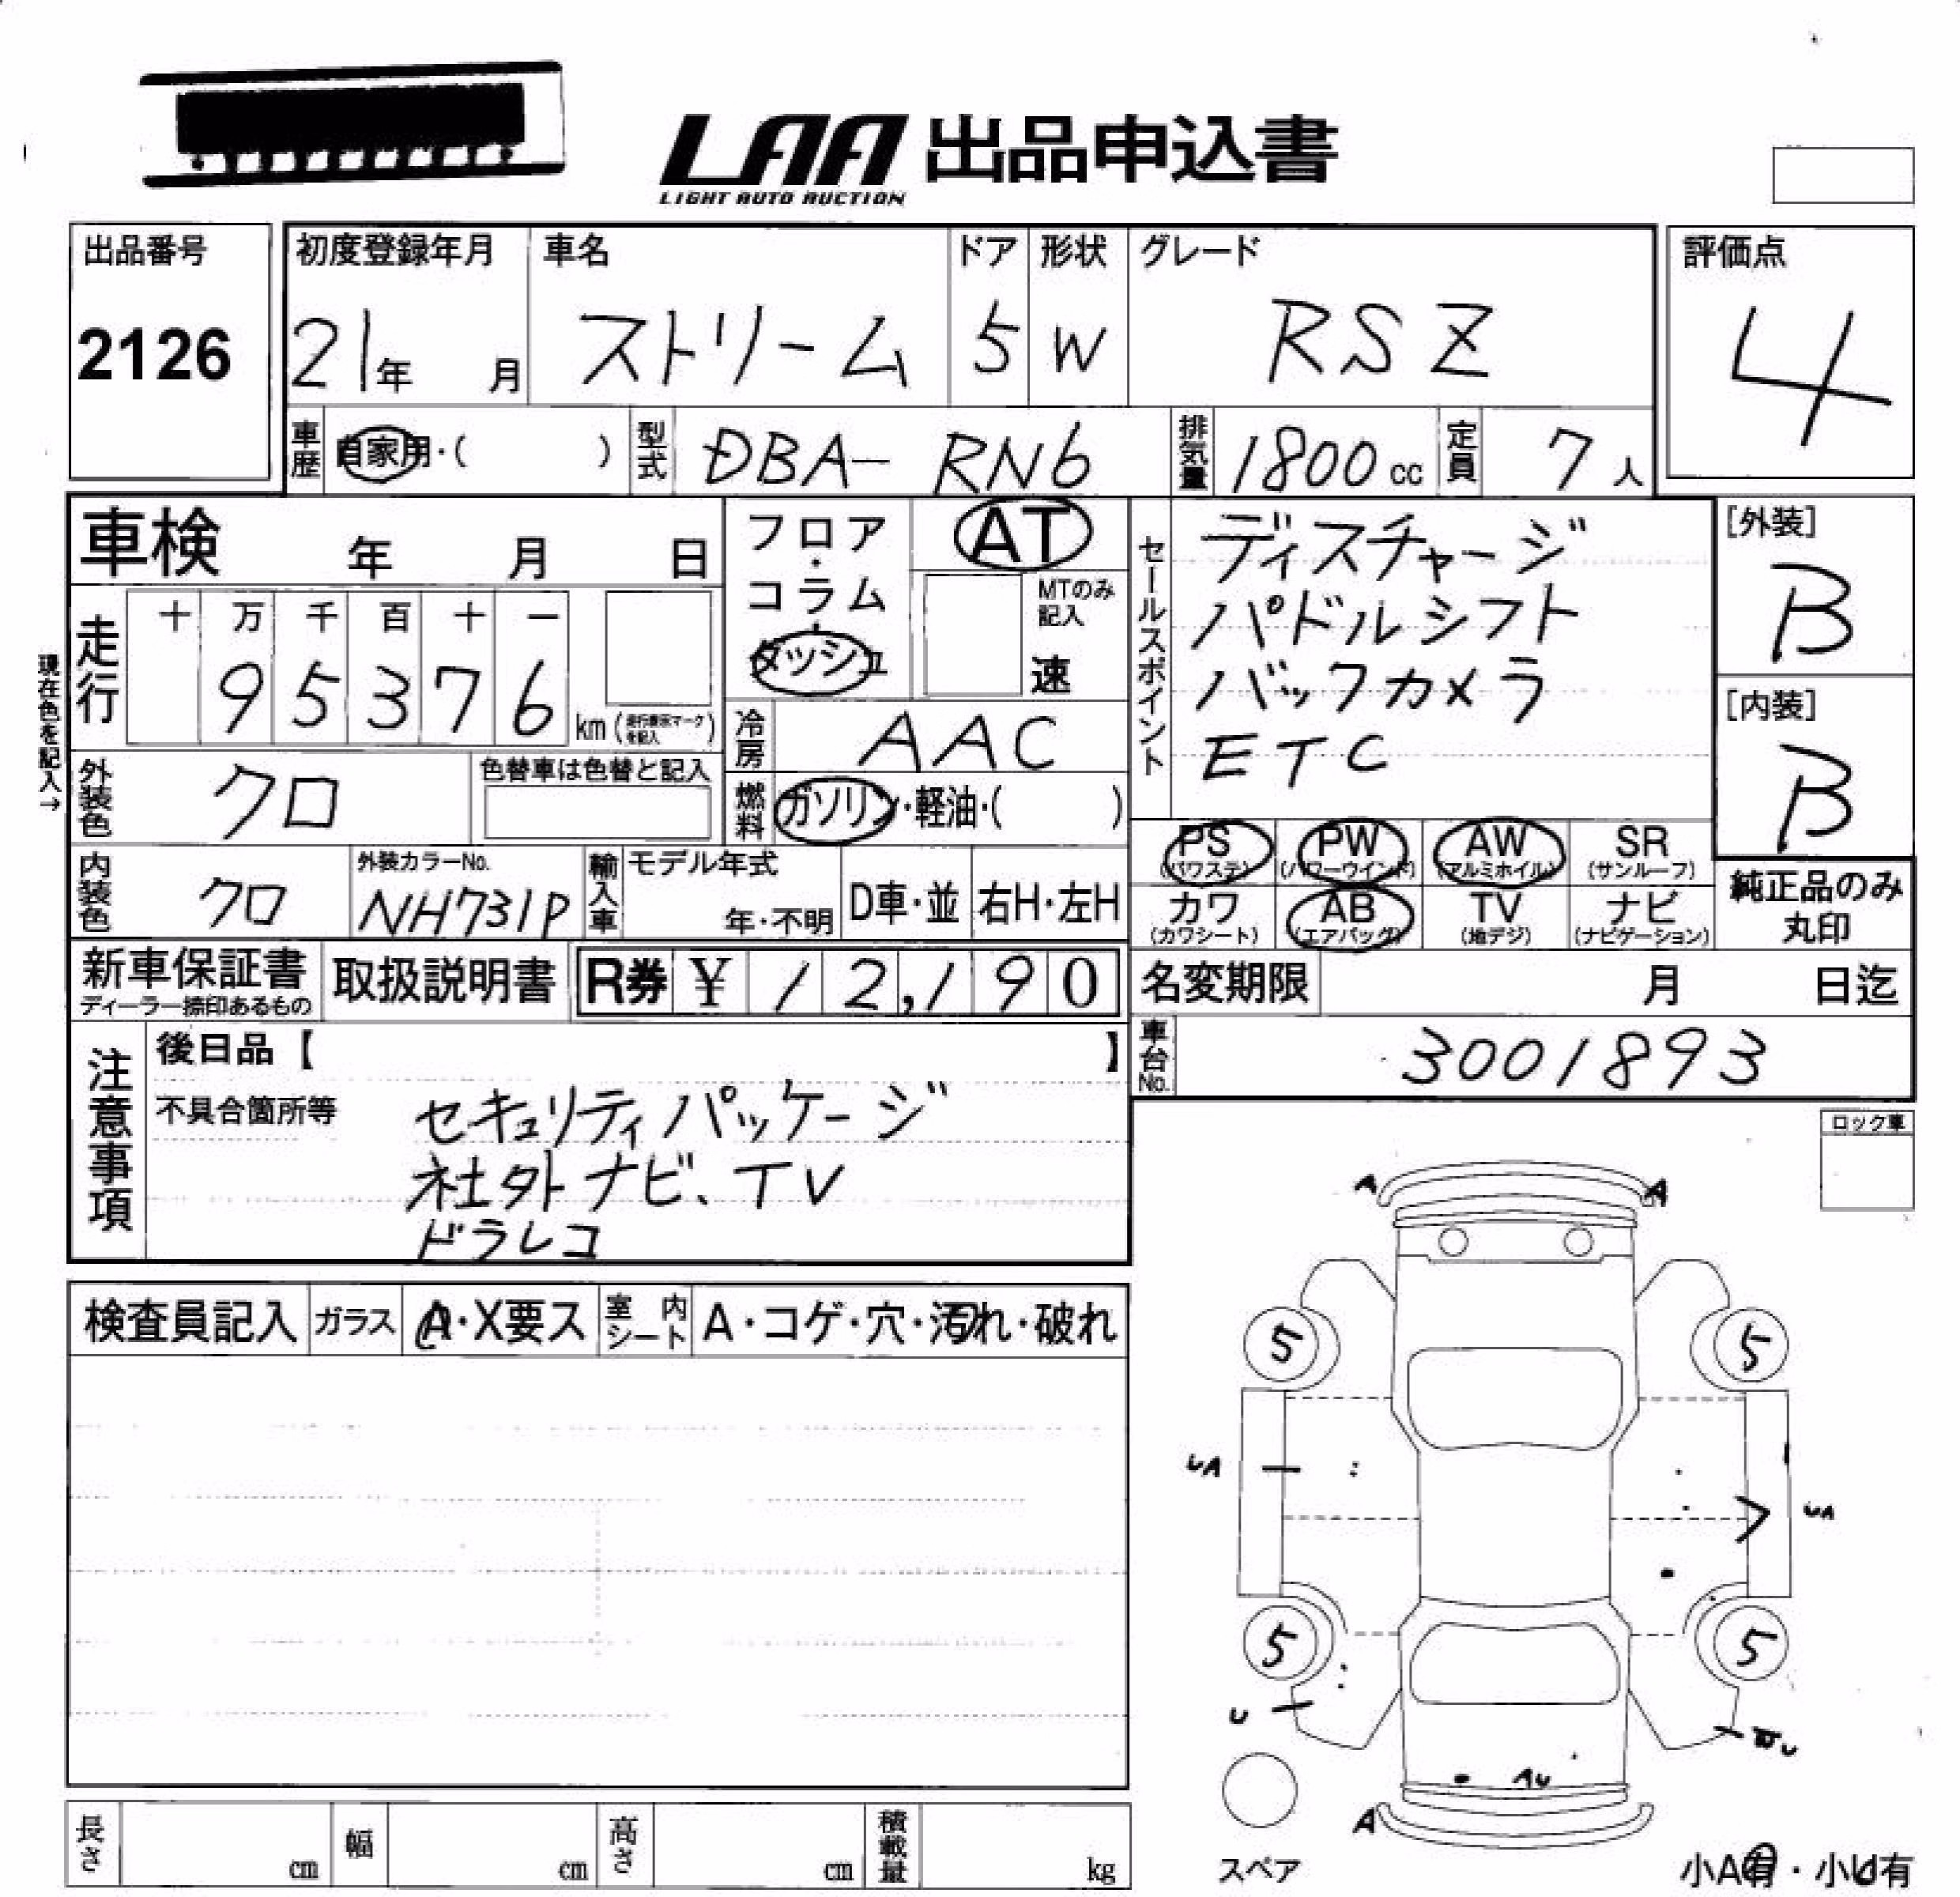 LAA 出品申込書
LIGHT AUTO AUCTION
出品番号
2126
初度登録年月
21年 月
車名
ストリーム
ドア
5
形状
W
グレード
RSZ
評価点
4
車歴
自家用・( )
型式
DBA- RN6
排気量
1800 cc
定員
7 人
車検 年 月 日
フロア・コラム・ダッシュ
AT
MTのみ記入
速
セールスポイント
ディスチャージ
パドルシフト
バックカメラ
ETC
[外装]
B
[内装]
B
現在色を記入→
走行
十 万 千 百 十 一
9 5 3 7 6
km (走行表示マークを記入)
冷房
AAC
外装色
クロ
色替車は色替と記入
燃料
ガソリン・軽油・( )
内装色
クロ
外装カラーNo.
NH731P
輸入車
モデル年式
年・不明
D車・並
右H・左H
PS (パワステ)
PW (パワーウインド)
AW (アルミホイル)
SR (サンルーフ)
カワ (カワシート)
AB (エアバッグ)
TV (地デジ)
ナビ (ナビゲーション)
純正品のみ
丸印
新車保証書
ディーラー捺印あるもの
取扱説明書
R券 ¥ 12,190
名変期限 月 日迄
車台No.
3001893
注意事項
後日品【 】
不具合箇所等
セキュリティパッケージ
社外ナビ、TV
ドラレコ
ロック車
検査員記入
ガラス
A・X要ス
室内シート
A・コゲ・穴・汚れ・破れ
A A
5 5
UA UA
5 5
U
AU
A
スペア
小A有・小U有
長さ cm
幅 cm
高さ cm
積載量 kg